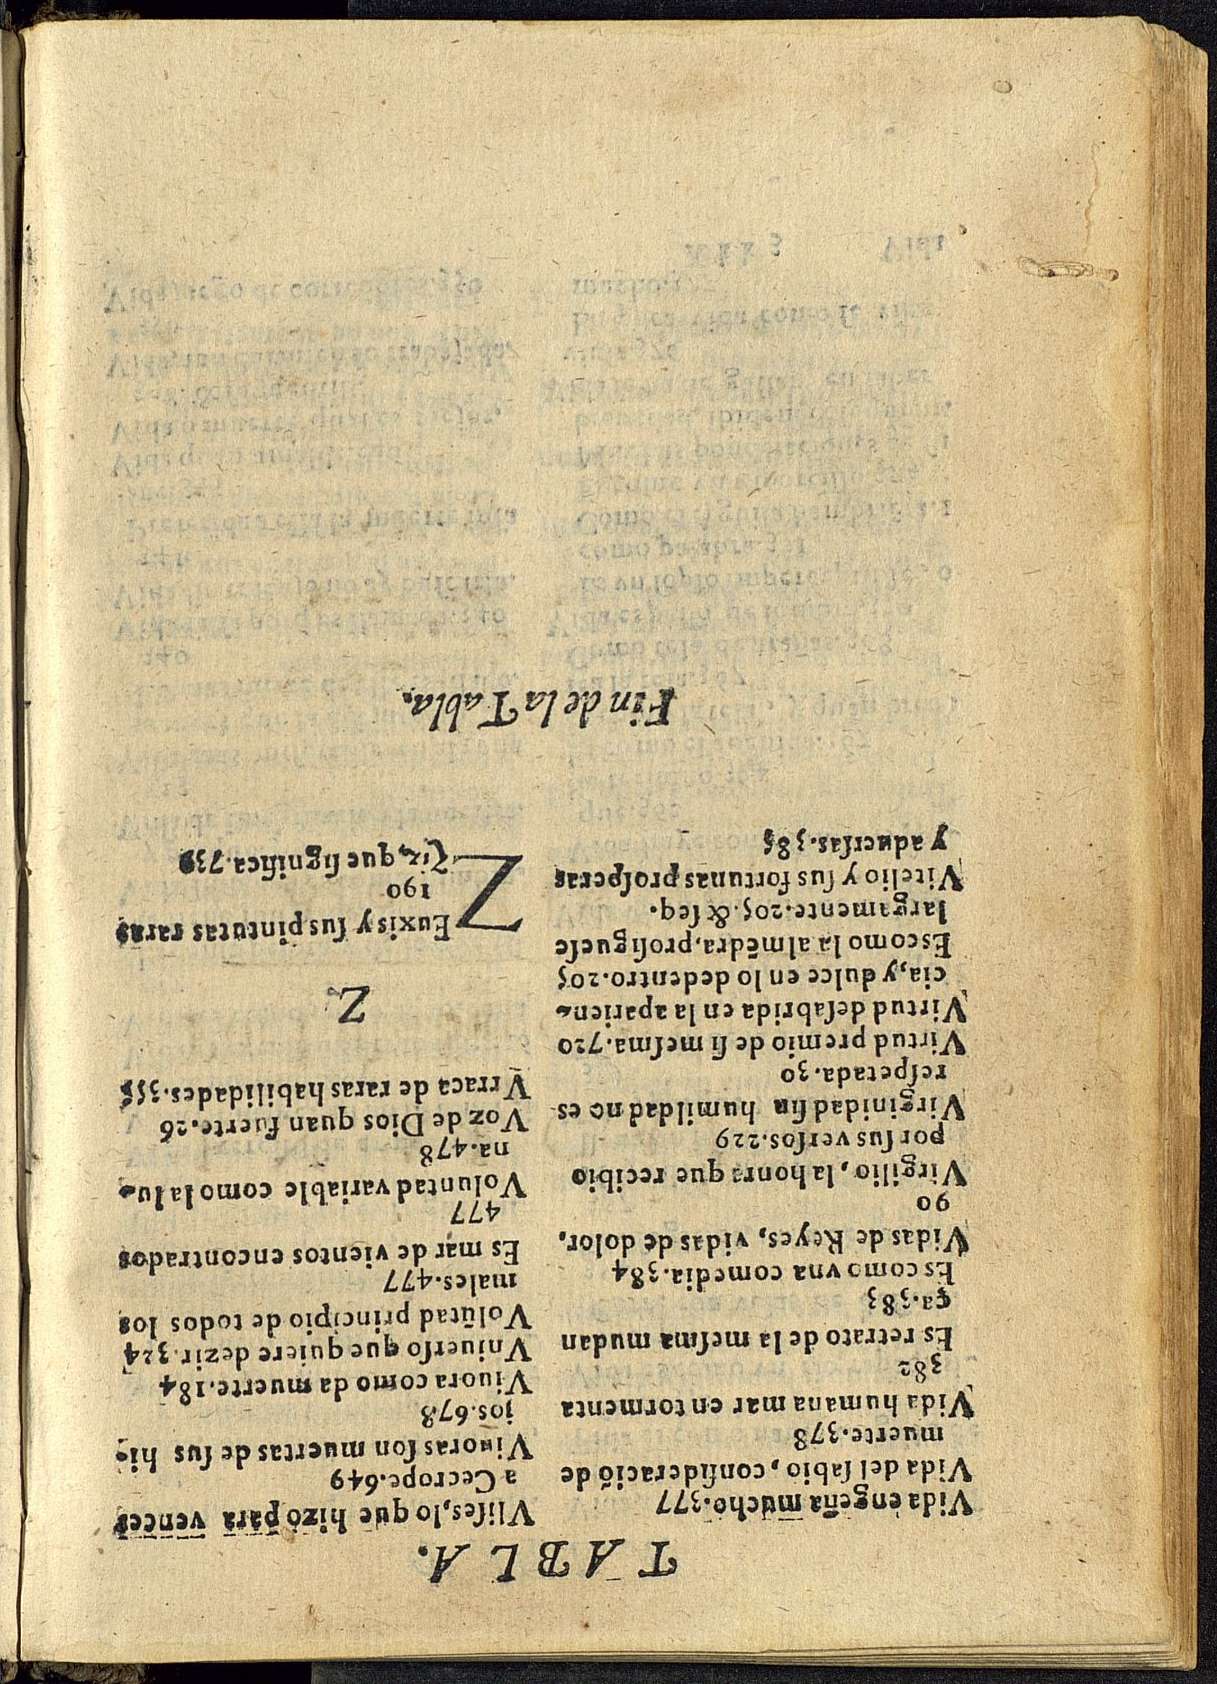 TABLA.
Vida engeña mucho.377
Vida del sabio, consideració de
muerte.378
Vida humana mar en tormenta
382
Es retrato de la mesma mudan
ça.383
Es como vna comedia.384
Vidas de Reyes, vidas de dolor,
90
Virgilio, la honra que recibio
por sus versos.229
Virginidad sin humildad no es
respetada.30
Virtud premio de si mesma.720
Virtud desabrida en la aparien-
cia, y dulce en lo dedentro.205
Es como la almēdra, prosiguese
largamente.205.& seq.
Vitelio y sus fortunas prosperas
y aduersas.385
Vlises, lo que hizo para vencer
a Cecrope.649
Viuoras son muertas de sus hi-
jos.678
Viuora como da muerte.184
Vniuerso que quiere dezir.324
Volūtad principio de todos los
males.477
Es mar de vientos encontrados
477
Voluntad variable como la lu-
na.478
Voz de Dios quan fuerte.26
Vrraca de raras habilidades.355
Z
ZEuxis y sus pinturas raras
190
Ziz, que significa.739
Fin de la Tabla.